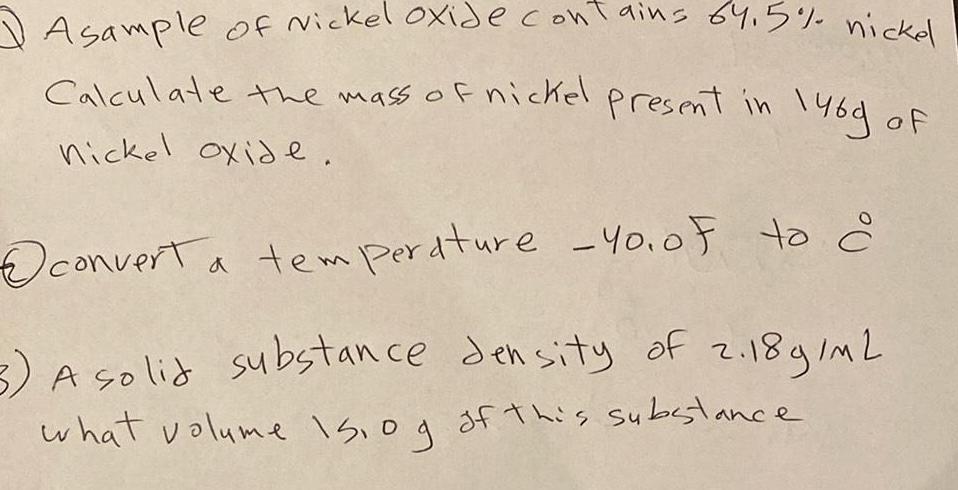 1) A sample of Nickel oxide contains 64.5% nickel
Calculate the mass of nickel present in 146g of
nickel oxide.
2) convert a temperature -40.0F to C°
3) A solid substance density of 2.18g/mL
what volume 15.0g of this substance